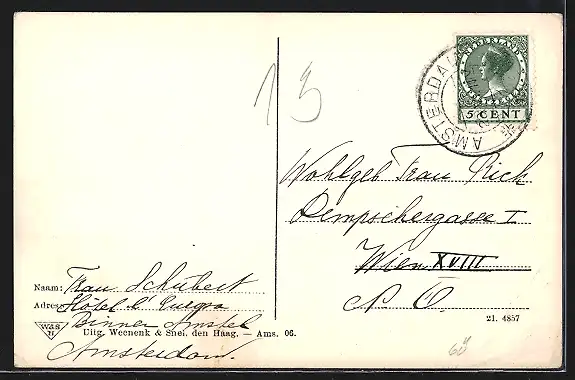 13
AMSTERDAM
NEDERLAND
5 CENT
Wohlgeb Frau Rich
Dempschergasse I
Wien XVIII
N. Ö.
Naam: Frau Schubert
Adres: Hôtel d' Europa
Binnen Amstel
W&S
H
Uitg. Weenenk & Snel. den Haag. — Ams. 06.
21. 4857
Amsterdam.